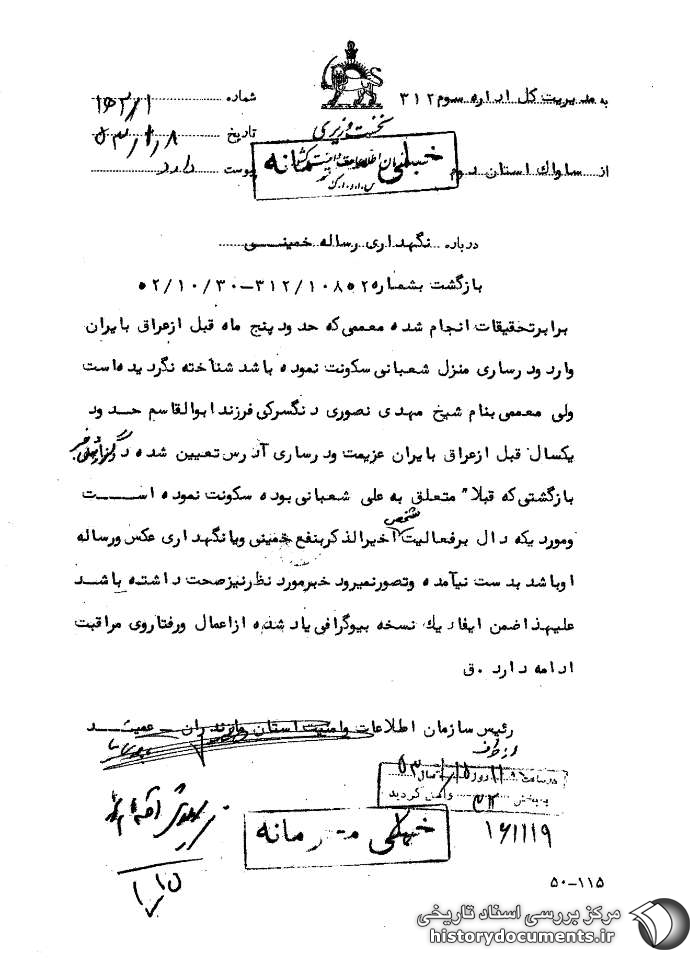 به مدیریت کل اداره سوم ۳۱۲
شماره
از ساواک استان دوم
نخست وزیری
تاریخ ۵۳/۱/۸
خیلی محرمانه
پیوست دارد
درباره نگهداری رساله خمینی
بازگشت بشماره ۳۱۲/۱۰۸۵۲-۵۲/۱۰/۳۰
برابر تحقیقات انجام شده معممی که حدود پنج ماه قبل از عراق بایران
وارد و در ساری منزل شعبانی سکونت نموده باشد شناخته نگردیده است
ولی معممی بنام شیخ مهدی نصوری دنگسرکی فرزند ابوالقاسم حدود
یکسال قبل از عراق بایران عزیمت و در ساری آدرس تعیین شده در گزارش خبر
بازگشتی که قبلا" متعلق به علی شعبانی بوده سکونت نموده است
و موردیکه دال بر فعالیت شخص اخیرالذکر بنفع خمینی و یا نگهداری عکس و رساله
او باشد بدست نیامده و تصور نمیرود خبر مورد نظر نیز صحت داشته باشد
علیهذا ضمن ایفاد یک نسخه بیوگرافی یاد شده از اعمال و رفتار وی مراقبت
ادامه دارد .ق
رئیس سازمان اطلاعات و امنیت استان مازندران - عمید
از طرف
در ساعت روز سال ۵۳
به بخش واصل گردید
خیلی محرمانه
۱۶۱۱۱۹
۵۰-۱۱۵
مرکز بررسی اسناد تاریخی
historydocuments.ir